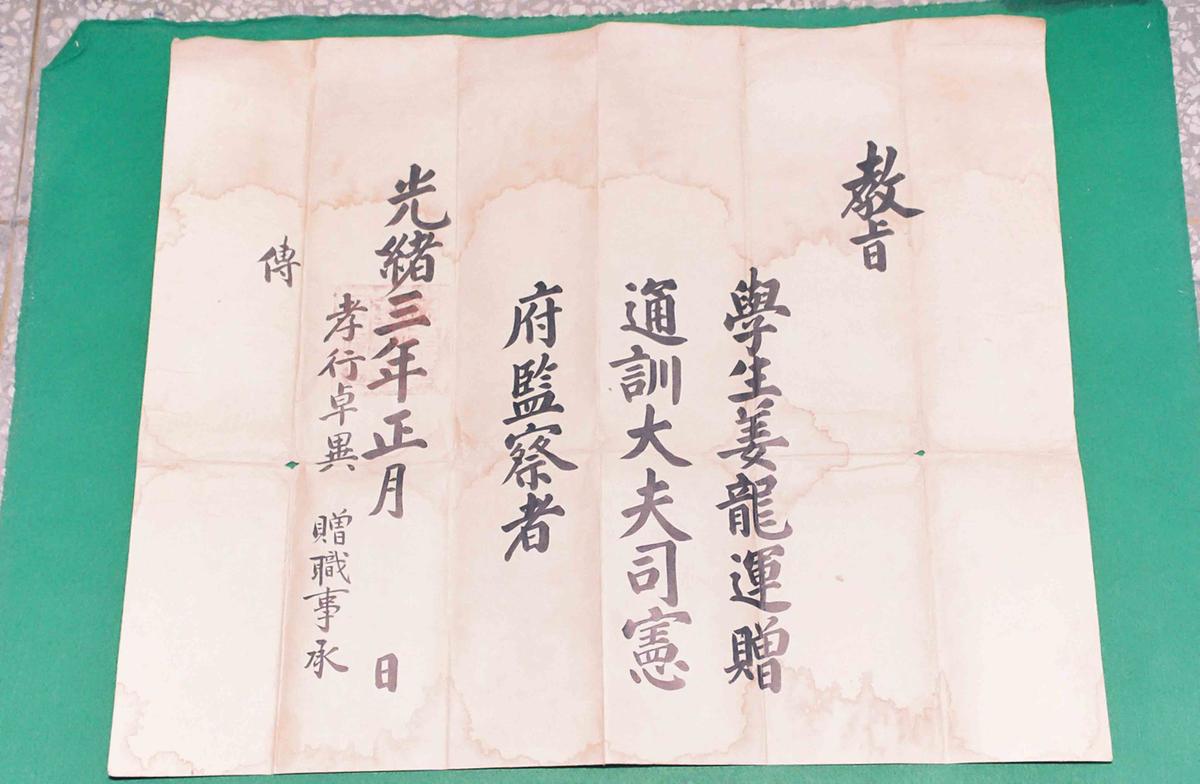 教旨
學生姜龍運贈
通訓大夫司憲
府監察者
光緖三年正月 日
孝行卓異 贈職事承
傳